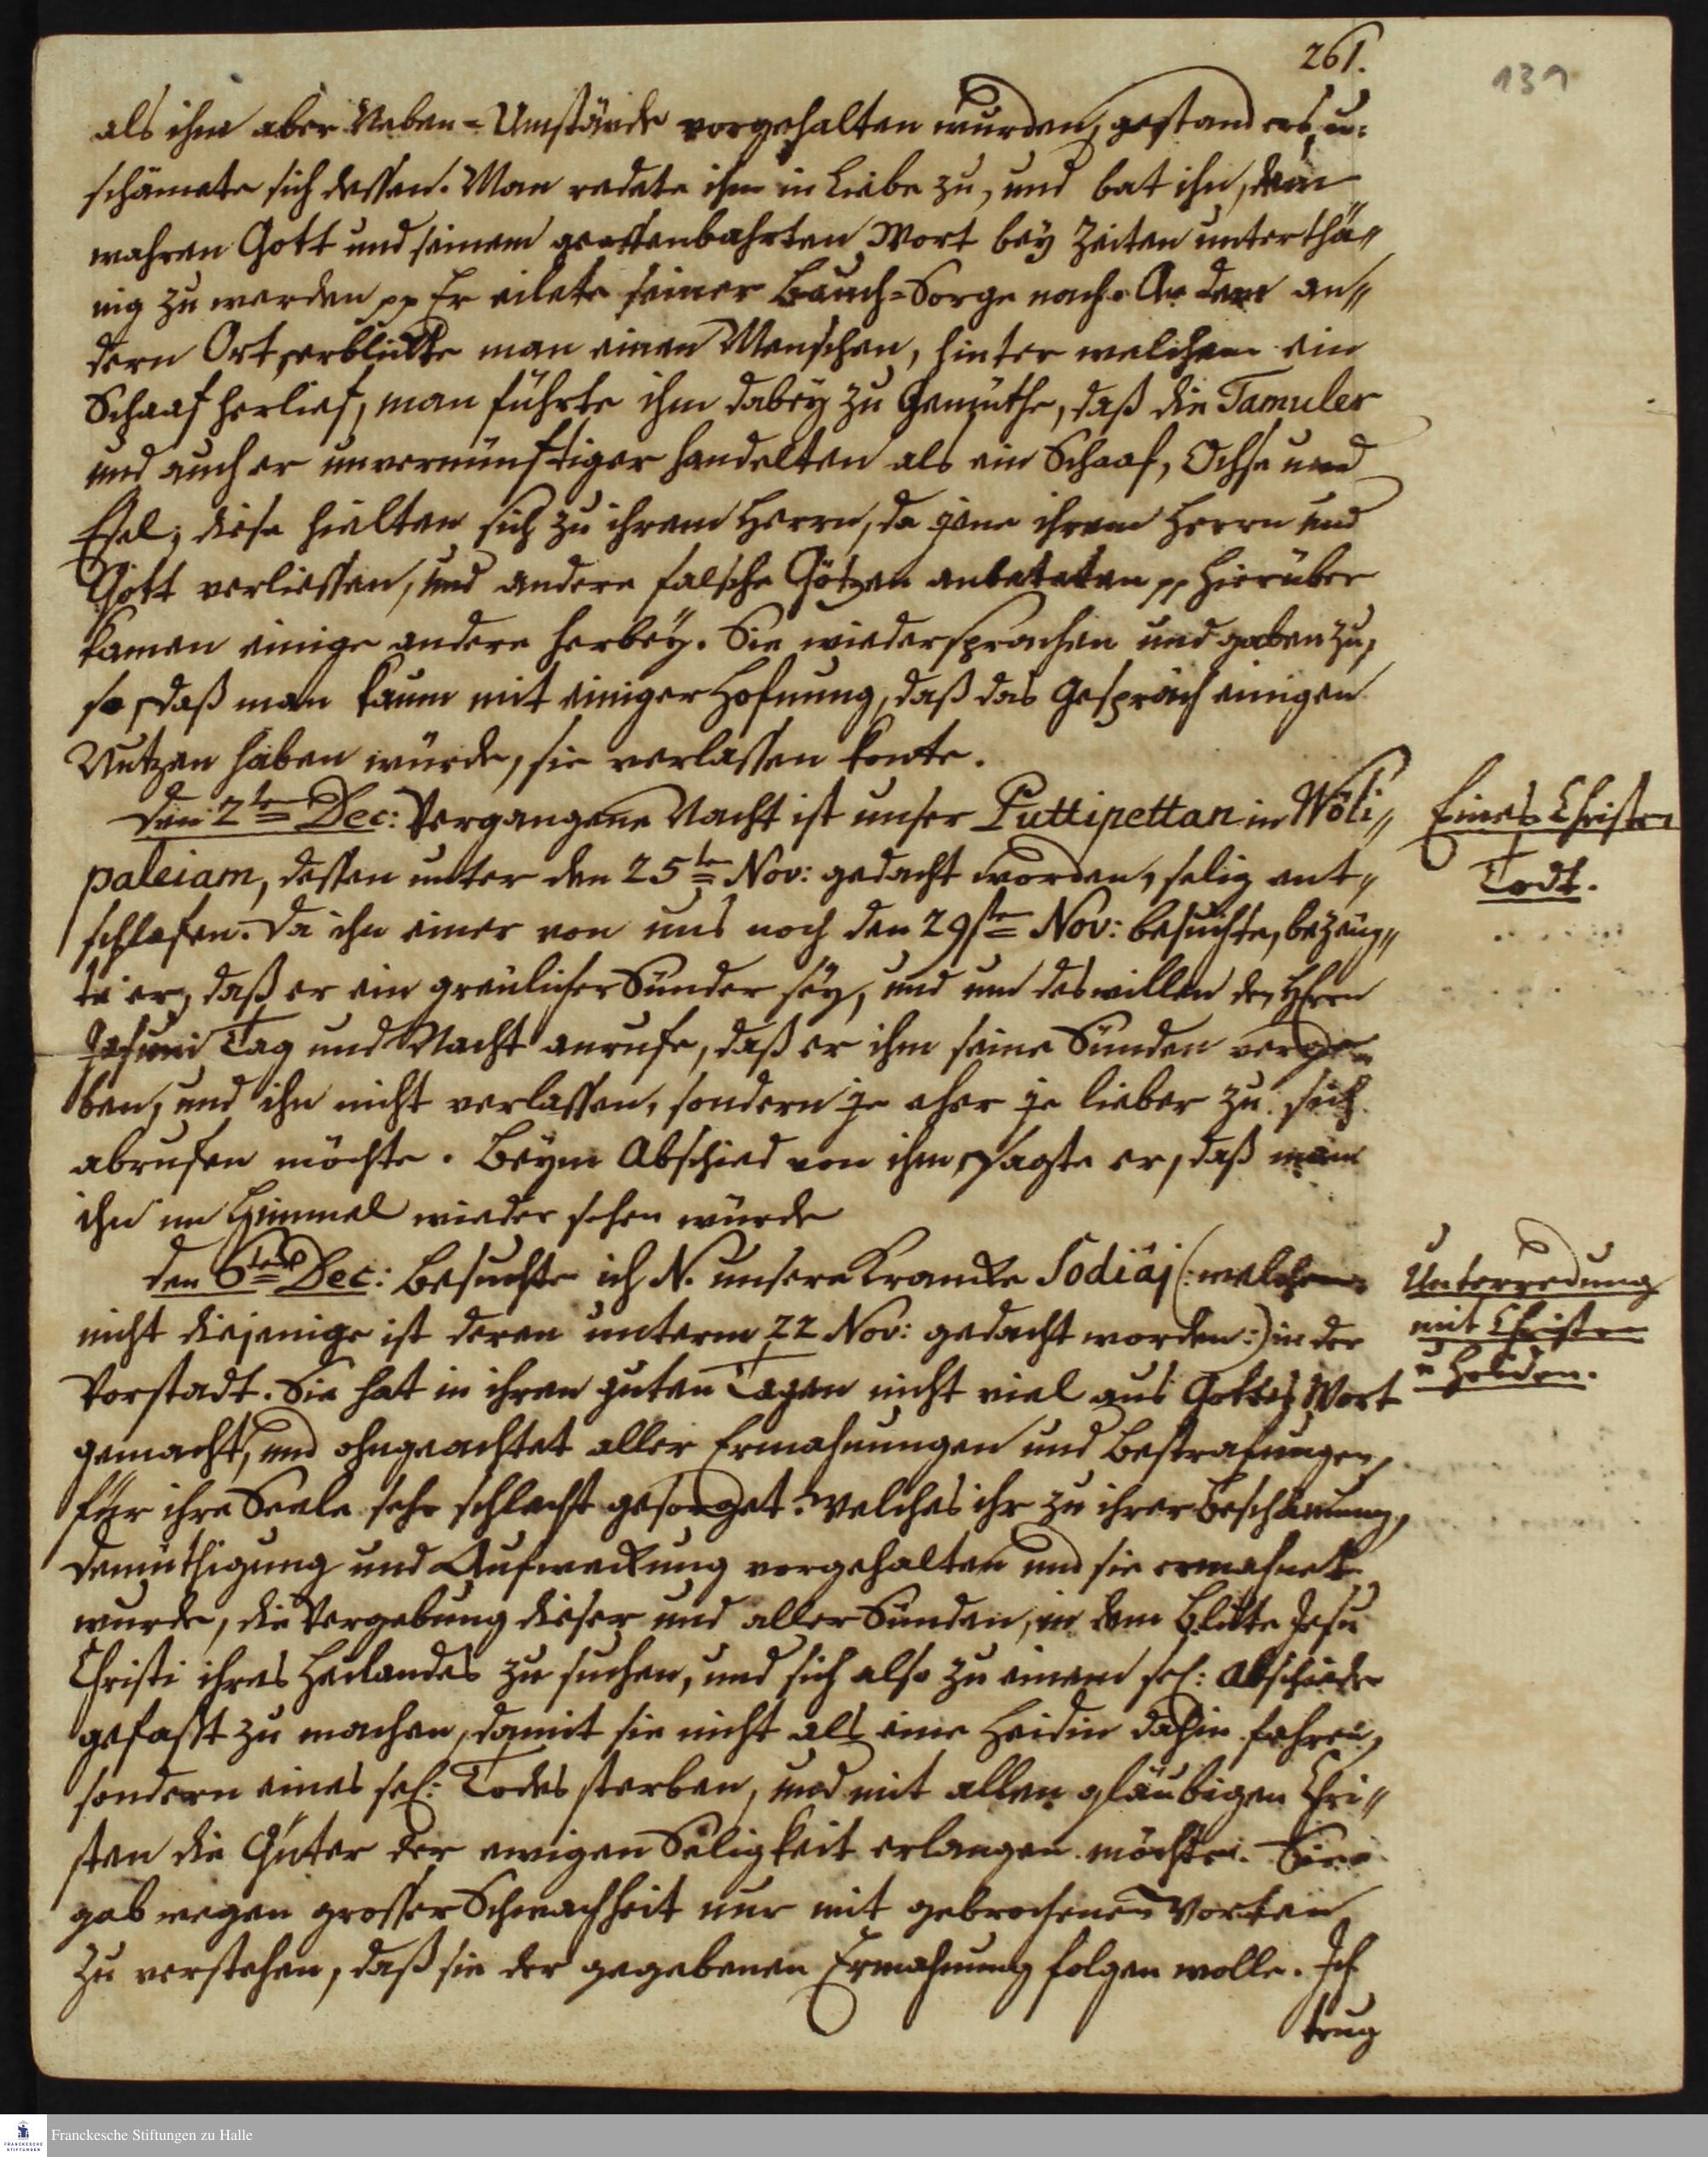 261.
139
als ihm aber Neben-Umstände vorgehalten wurden, gestand ers, u:
schämete sich dessen. Man redete ihm in Liebe zu, und bat ihn, dem
wahren Gott und seinem geoffenbahrten Wort bey Zeiten unterthä„
nig zu werden pp Er eilete seiner Bauch-Sorge nach. An dem an„
dern Ort erblickte man einen Menschen, hinter welchem ein
Schaaf herlief, man führte ihm dabey zu Gemüthe, daß die Tamuler
und auch er unvernünftiger handelten als ein Schaaf, Ochse und
Esel; diese hielten sich zu ihrem Herrn, da jene ihrem Herrn und
Gott verliessen, und andere falsche Götzen anbeteten pp Hierüber
kamen einige andere herbey. Sie wiedersprachen und gaben zu,
so, daß man kaum mit einiger Hofnung, daß das Gespräch einigen
Nutzen haben würde, sie verlassen konte.
den 2te Dec: Vergangene Nacht ist unser Puttipettan in Wöli„
paleiam, dessen unter den 25te Nov: gedacht worden, selig ent„
schlafen. Da ihn einer von uns noch den 29ste Nov: besuchte, bezeug„
te er, daß er ein greulicher Sünder sey, und um deswillen den HErrn
Jesum Tag und Nacht anrufe, daß er ihm seine Sünden verge„
ben, und ihn nicht verlassen, sondern je eher je lieber zu sich
abrufen möchte. Beym Abschied von ihm, sagte er, daß man
ihn im Himmel wieder sehen würde
Eines Christen
Todt.
den 6ten Dec: Besuchte ich N. unsere Krancke Sodiäj (: welche
nicht diejenige ist deren unterm 22 Nov: gedacht worden:) in der
Vorstadt. Sie hat in ihren guten Tagen nicht viel aus Gottes Wort
gemacht, und ohngeachtet aller Ermahnungen und Bestrafungen,
für ihre Seele sehr schlecht gesorget. Welches ihr zu ihrer Beschämung,
Demüthigung und Aufweckung vorgehalten und sie ermahnet
wurde, die Vergebung dieser und aller Sünden, in dem Blutte Jesu
Christi ihres Heilandes zu suchen, und sich also zu einem sel: Abschiede
gefasst zu machen, damit sie nicht als eine Heidin dahin fahren,
sondern eines sel: Todes sterben, und mit allen gläubigen Chri„
sten die Güter der ewigen Seligkeit erlangen möchte. Sie
gab wegen grosser Schwachheit nur mit gebrochenen Worten
zu verstehen, daß sie der gegebenen Ermahnung folgen wolle. Ich
trug
Unterredung
mit Christen
u Heiden.
Franckesche Stiftungen zu Halle